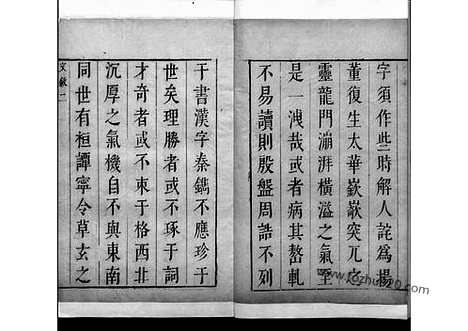 字須作些時解人詫為楊
董復生太華嶔嶔突兀之
靈龍門漰湃橫溢之氣至
是一洩哉或者病其嶅軋
不易讀則殷盤周誥不列
于書漢字秦鐫不應珍于
世矣理勝者或不琢于詞
才奇者或不束于格西北
沉厚之氣機自不與東南
同世有桓譚寧令草玄之
文敘二